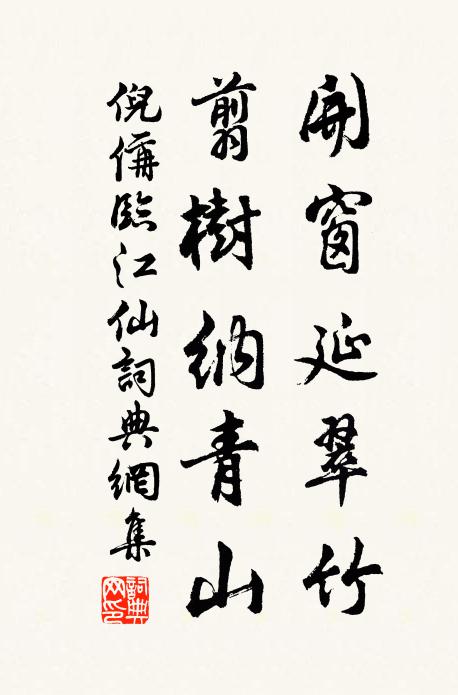 開窗延翠竹
翦樹納青山
倪偁臨江仙詞典網集
詞典網印